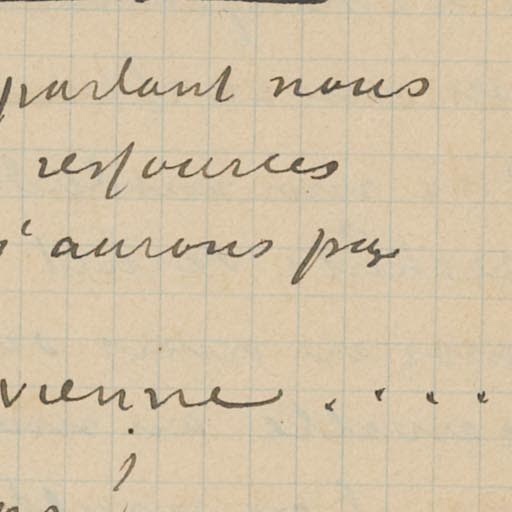 partant nous
ressources
'aurons pas
vienne ....